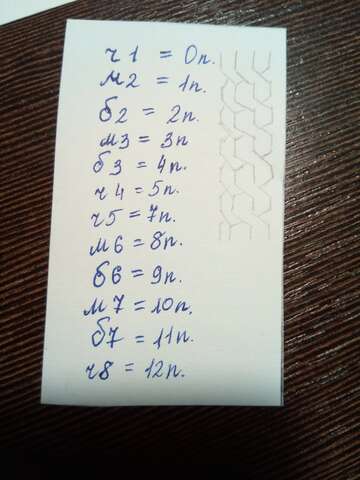 ч1 = 0п.
м2 = 1п.
б2 = 2п.
м3 = 3п
б3 = 4п.
ч4 = 5п.
ч5 = 7п.
м6 = 8п.
б6 = 9п.
м7 = 10п.
б7 = 11п.
ч8 = 12п.